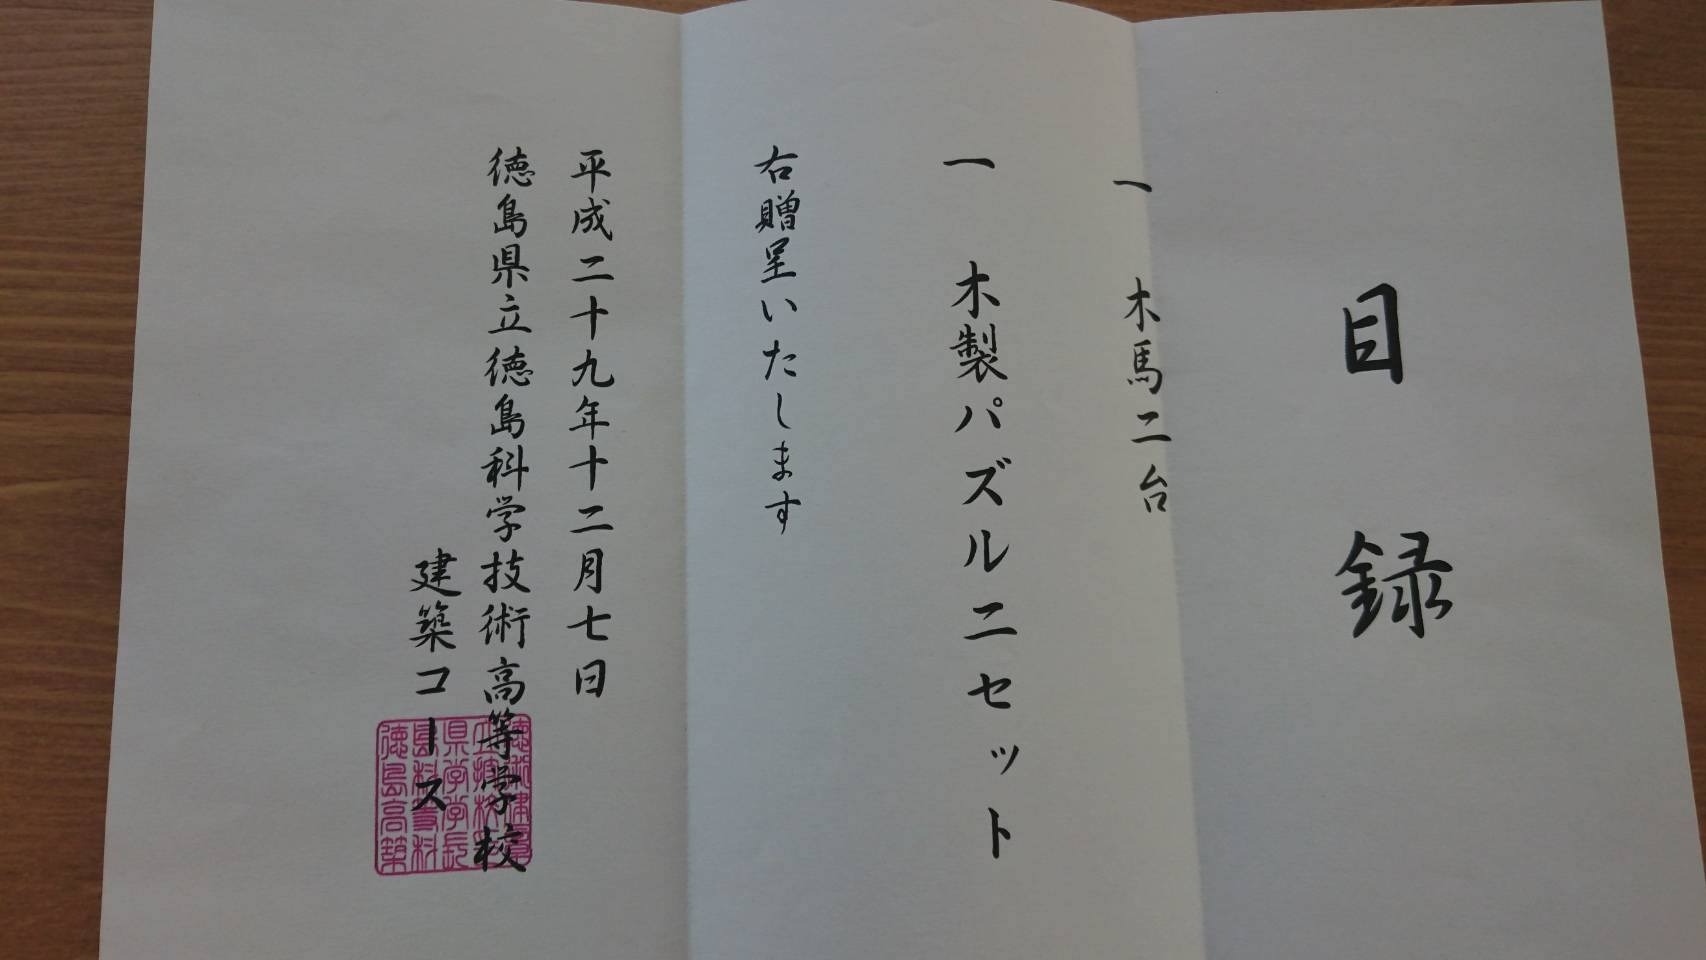 目録
一 木馬二台
一 木製パズル二セット
右贈呈いたします
平成二十九年十二月七日
徳島県立徳島科学技術高等学校
建築コース